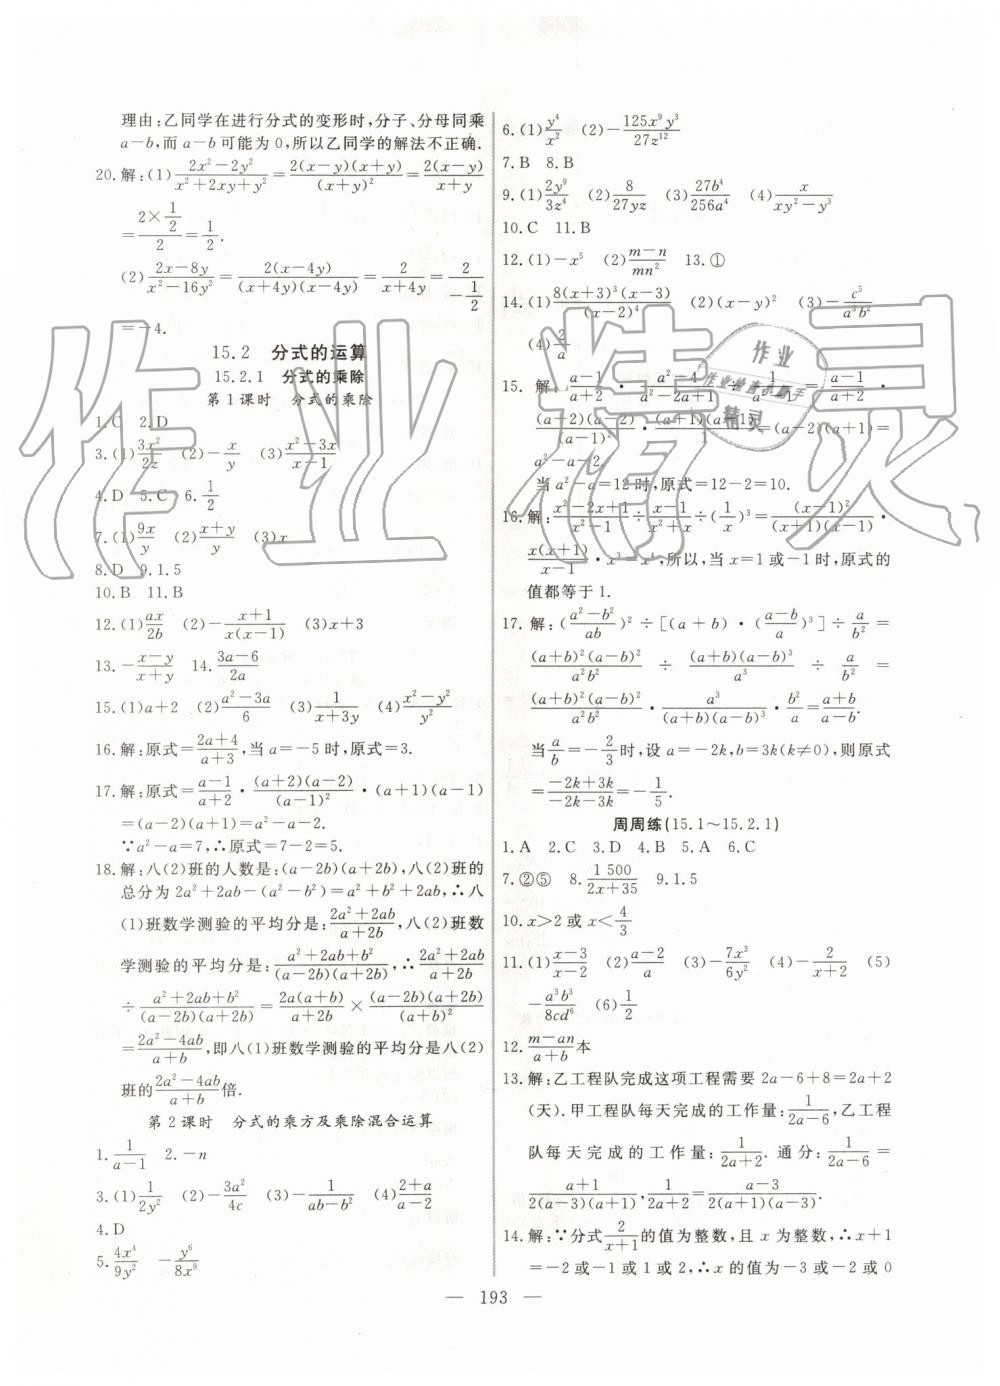 理由:乙同学在进行分式的变形时,分子、分母同乘
a-b,而 a-b 可能为 0,所以乙同学的解法不正确.
20.解:(1) (2x²-2y²)/(x²+2xy+y²) = 2(x-y)(x+y)/(x+y)² = 2(x-y)/(x+y)
= (2×1/2)/2 = 1/2.
(2) (2x-8y)/(x²-16y²) = 2(x-4y)/((x+4y)(x-4y)) = 2/(x+4y) = 2/(-1/2)
=-4.
15.2 分式的运算
15.2.1 分式的乘除
第1课时 分式的乘除
1.C 2.D
3.(1) 3x²/2z (2)-x/y (3) (x²-3x)/(x-1)
4.D 5.C 6. 1/2
7.(1) 9x/y (2) (x+y)/y (3)x
8.D 9.1.5
10.B 11.B
12.(1) ax/2b (2)-(x+1)/(x(x-1)) (3)x+3
13.-(x-y)/(x+y) 14. (3a-6)/2a
15.(1)a+2 (2) (a²-3a)/6 (3) 1/(x+3y) (4) (x²-y²)/y²
16.解:原式=(2a+4)/(a+3),当 a=-5 时,原式=3.
17.解:原式=(a-1)/(a+2)·(a+2)(a-2)/(a-1)²·(a+1)(a-1)
=(a-2)(a+1)=a²-a-2.
∵a²-a=7,∴原式=7-2=5.
18.解:八(2)班的人数是:(a-2b)(a+2b),八(2)班的
总分为 2a²+2ab-(a²-b²)=a²+b²+2ab,∴八
(1)班数学测验的平均分是:(2a²+2ab)/(a+2b),八(2)班数
学测验的平均分是:(a²+2ab+b²)/((a-2b)(a+2b)),∴(2a²+2ab)/(a+2b)
÷(a²+2ab+b²)/((a-2b)(a+2b)) = 2a(a+b)/(a+2b)×(a-2b)(a+2b)/(a+b)²
=(2a²-4ab)/(a+b),即八(1)班数学测验的平均分是八(2)
班的(2a²-4ab)/(a+b)倍.
第2课时 分式的乘方及乘除混合运算
1. 1/(a-1) 2.-n
3.(1) 1/2y² (2)-3a²/4c (3)-1/(ab-b²) (4) (2+a)/(a-2)
4.D
5. 4x⁴/9y² -y⁶/8x⁹
6.(1) y⁴/x² (2)-125x⁹y³/27z¹²
7.B 8.B
9.(1) 2y⁹/3z⁴ (2) 8/27yz (3) 27b⁴/256a⁴ (4) x/(xy²-y³)
10.C 11.B
12.(1)-x⁵ (2) (m-n)/mn² 13.①
14.(1) 8(x+3)³(x-3)/(x-2)⁴ (2)(x-y)² (3)-c⁵/a³b²
(4) 2/a
15. 解:(a-1)/(a+2)·(a²-4)/(a²-2a+1)÷1/=(a-1)/(a+2)·
(a+2)(a-2)/·(a+1)(a-1)=(a-2)(a+1)=
a²-a-2.
当 a²-a=12时,原式=12-2=10.
16.解:(x²-2x+1)/(x²-1)÷(x-1)/(x²+x)÷(1/x)³=(x-1)²/((x+1)(x-1))·
x(x+1)/(x-1)·x³=x⁴,所以,当 x=1或-1时,原式的
值都等于 1.
17.解:((a²-b²)/ab)²÷[(a+b)·((a-b)/a)³]÷a/b²=
(a+b)²(a-b)²/a²b²÷(a+b)(a-b)³/a³÷a/b²=
(a+b)²(a-b)²/a²b²·a³/((a+b)(a-b)³)·b²/a=(a+b)/(a-b).
当 a/b=-2/3时,设 a=-2k,b=3k(k≠0),则原式
=(-2k+3k)/(-2k-3k)=-1/5.
周周练(15.1~15.2.1)
1.A 2.C 3.D 4.B 5.A 6.C
7.②⑤ 8. 1 500/(2x+35) 9.1.5
10.x>2 或 x<4/3
11.(1) (x-3)/(x-2) (2) (a-2)/a (3)-7x³/6y² (4)-2/(x+2) (5)
-a³b³/8cd⁶ (6) 1/2
12. (m-an)/(a+b)本
13.解:乙工程队完成这项工程需要 2a-6+8=2a+2
(天).甲工程队每天完成的工作量:1/(2a-6),乙工程
队每天完成的工作量:1/(2a+2).通分:1/(2a-6)=
(a+1)/(2(a-3)(a+1)),1/(2a+2)=(a-3)/(2(a+1)(a-3)).
14.解:∵分式 2/(x+1)的值为整数,且 x 为整数,∴x+1
=-2 或-1 或 1 或 2,∴x 的值为-3 或-2 或 0
— 193 —
作业精灵
作业
作业检查小助手
精灵